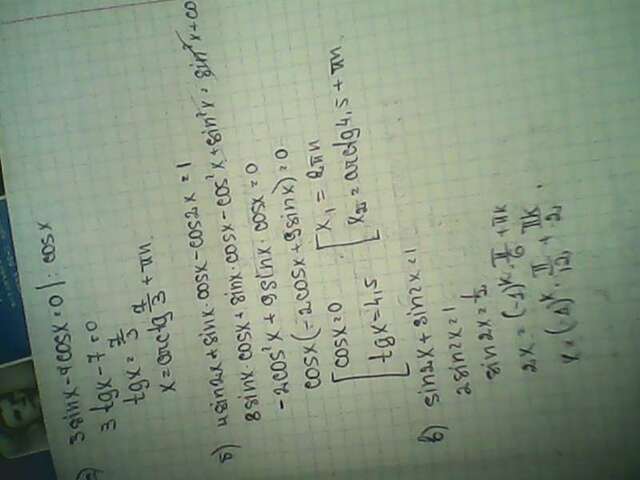 а) 3sinx-7cosx=0 |: cosx
3tgx-7=0
tgx=7/3
x=arctg 7/3 + πn.
б) 4sin2x+sinx·cosx-cos2x=1
8sinx·cosx+sinx·cosx-cos²x+sin²x=sin²x+co
-2cos²x+9sinx·cosx=0
cosx(-2cosx+9sinx)=0
[cosx=0 [x₁=2πn
[tgx=4,5 [x₂=arctg4,5+πn.
в) sin2x+sin2x=1
2sin2x=1
sin2x=1/2
2x=(-1)ᵏ·π/6+πk
x=(-1)ᵏ·π/12+πk/2.